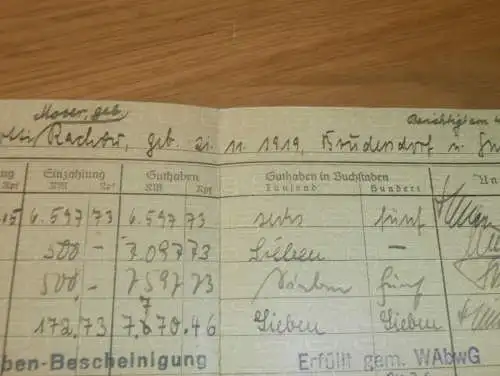 Moser, geb.
Berichtigt am
Rachau, geb. 21. 11. 1919, Brudersdorf
Einzahlung Guthaben Guthaben in Buchstaben
Rpf RM Rpf RM Rpf Tausend Hundert
15 6.597 73 6.597 73 sechs fünf
500 - 7.097 73 Sieben —
500,- 7597 73 Sieben fünf
172,73 7.770.46 Sieben Sieben
ben-Bescheinigung Erfüllt gem. WAbwG